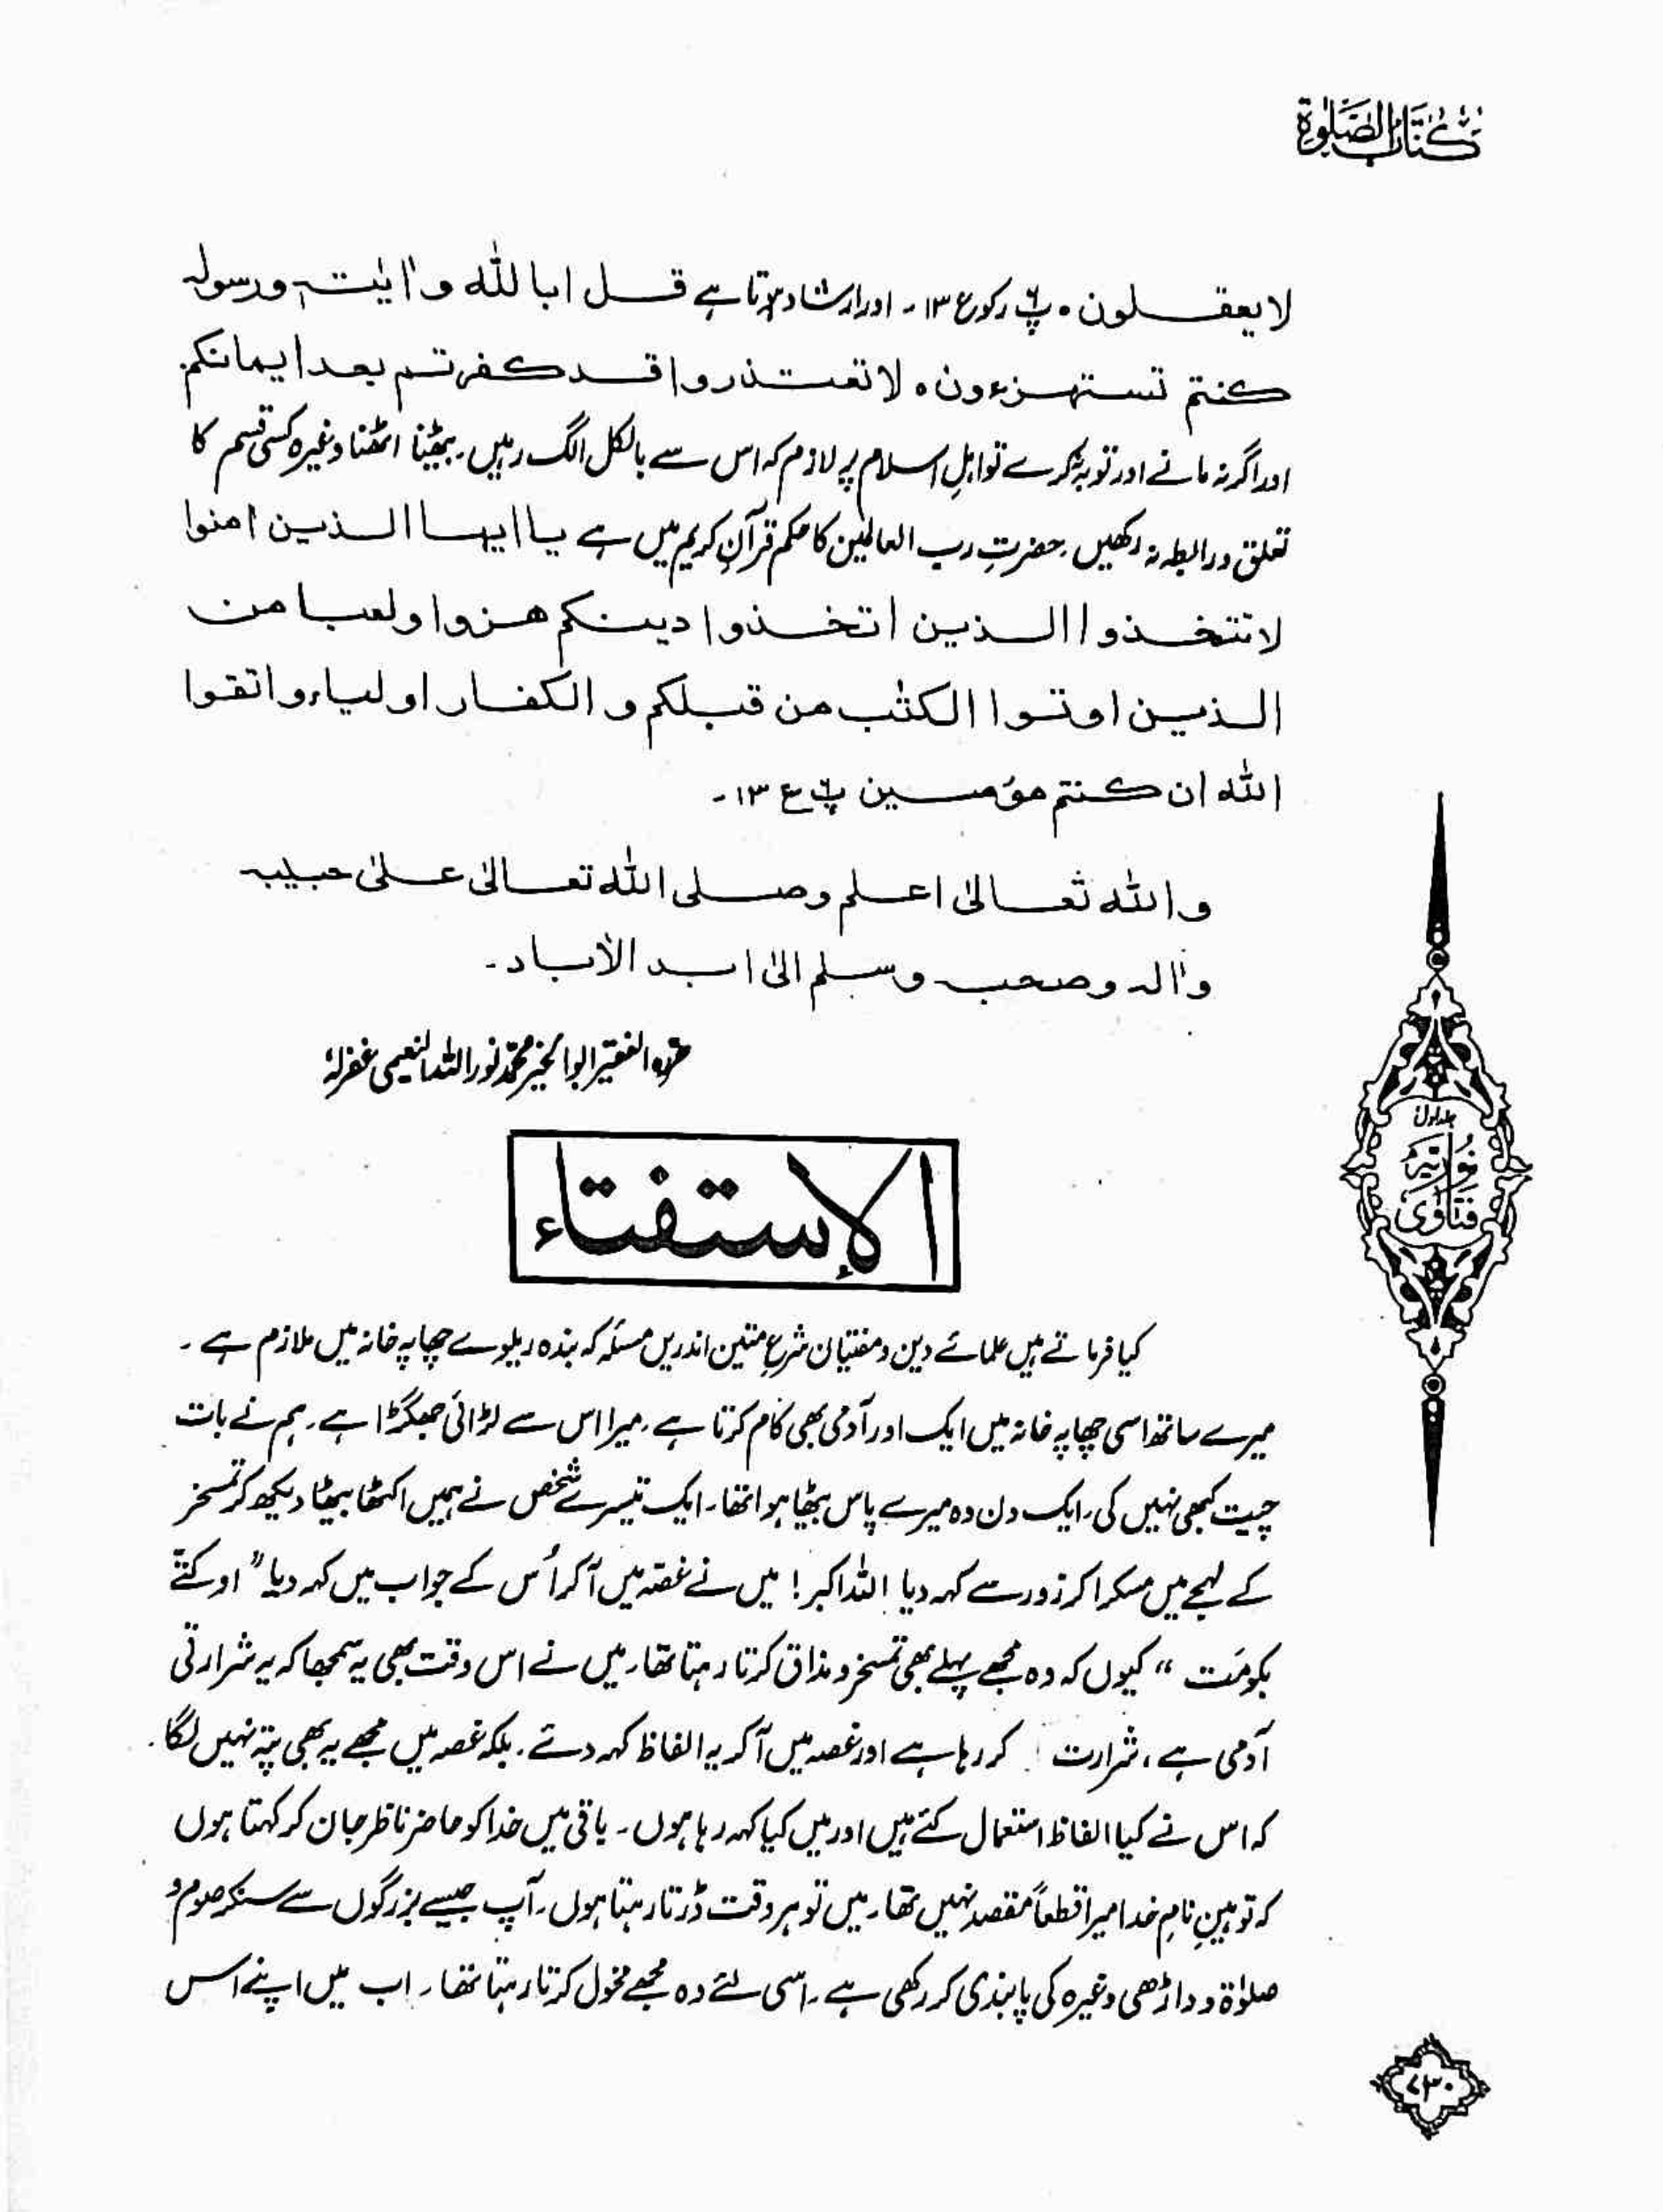 کتاب الصلوٰۃ
لا یعقلون ٥ پ٦ رکوع ١٣ ۔ اور ارشاد ہوتا ہے قل ابا للہ و اٰیٰتہ ورسولہ
کنتم تستہزءون ٥ لا تعتذروا قد کفرتم بعد ایمانکم
اور اگر نہ مانے اور توبہ نہ کرے تو اہلِ اسلام پر لازم کہ اس سے بالکل الگ رہیں۔ بیٹھنا اٹھنا وغیرہ کسی قسم کا
تعلق و رابطہ نہ رکھیں۔ حضرتِ رب العالمین کا حکم قرآنِ کریم میں ہے یا ایہا الذین اٰمنوا
لا تتخذوا الذین اتخذوا دینکم ھزوا ولعبا من
الذین اوتوا الکتٰب من قبلکم و الکفار اولیاء واتقوا
اللہ ان کنتم مؤمنین پ٦ ع ١٣ ۔
واللہ تعالیٰ اعلم وصلی اللہ تعالیٰ علیٰ حبیبہ
واٰلہ وصحبہ وسلم الیٰ ابد الاٰباد۔
حررہ الفقیر ابو الخیر محمد نور اللہ النعیمی غفرلہٗ
الإستفتاء
کیا فرماتے ہیں علمائے دین و مفتیان شرعِ متین اندریں مسئلہ کہ بندہ ریلوے چھاپہ خانہ میں ملازم ہے ۔
میرے ساتھ اسی چھاپہ خانہ میں ایک اور آدمی بھی کام کرتا ہے ۔ میرا اس سے لڑائی جھگڑا ہے ۔ ہم نے بات
چیت کبھی نہیں کی۔ ایک دن وہ میرے پاس بیٹھا ہوا تھا۔ ایک تیسرے شخص نے ہمیں اکٹھا بیٹھا دیکھ کر تمسخر
کے لہجے میں مسکرا کر زور سے کہہ دیا اللہ اکبر ! میں نے غصّہ میں آکر اُس کے جواب میں کہہ دیا " او کتّے
بکو مَت " کیوں کہ وہ مجھے پہلے بھی تمسخر و مذاق کرتا رہتا تھا۔ میں نے اس وقت بھی یہ سمجھا کہ یہ شرارتی
آدمی ہے ، شرارت کر رہا ہے اور غصہ میں آکر یہ الفاظ کہہ دئے ۔ بلکہ غصہ میں مجھے یہ بھی پتہ نہیں لگا۔
کہ اس نے کیا الفاظ استعمال کئے ہیں اور میں کیا کہہ رہا ہوں ۔ باقی میں خدا کو حاضر ناظر جان کر کہتا ہوں
کہ توہینِ نامِ خدا میرا قطعاً مقصد نہیں تھا۔ میں تو ہر وقت ڈرتا رہتا ہوں۔ آپ جیسے بزرگوں سے سنکر صوم و
صلوٰۃ و داڑھی وغیرہ کی پابندی کر رکھی ہے ۔ اسی لئے وہ مجھے مخول کرتا رہتا تھا۔ اب میں اپنے اس
جلد اول
نوریہ
فتاویٰ
٧٣٠